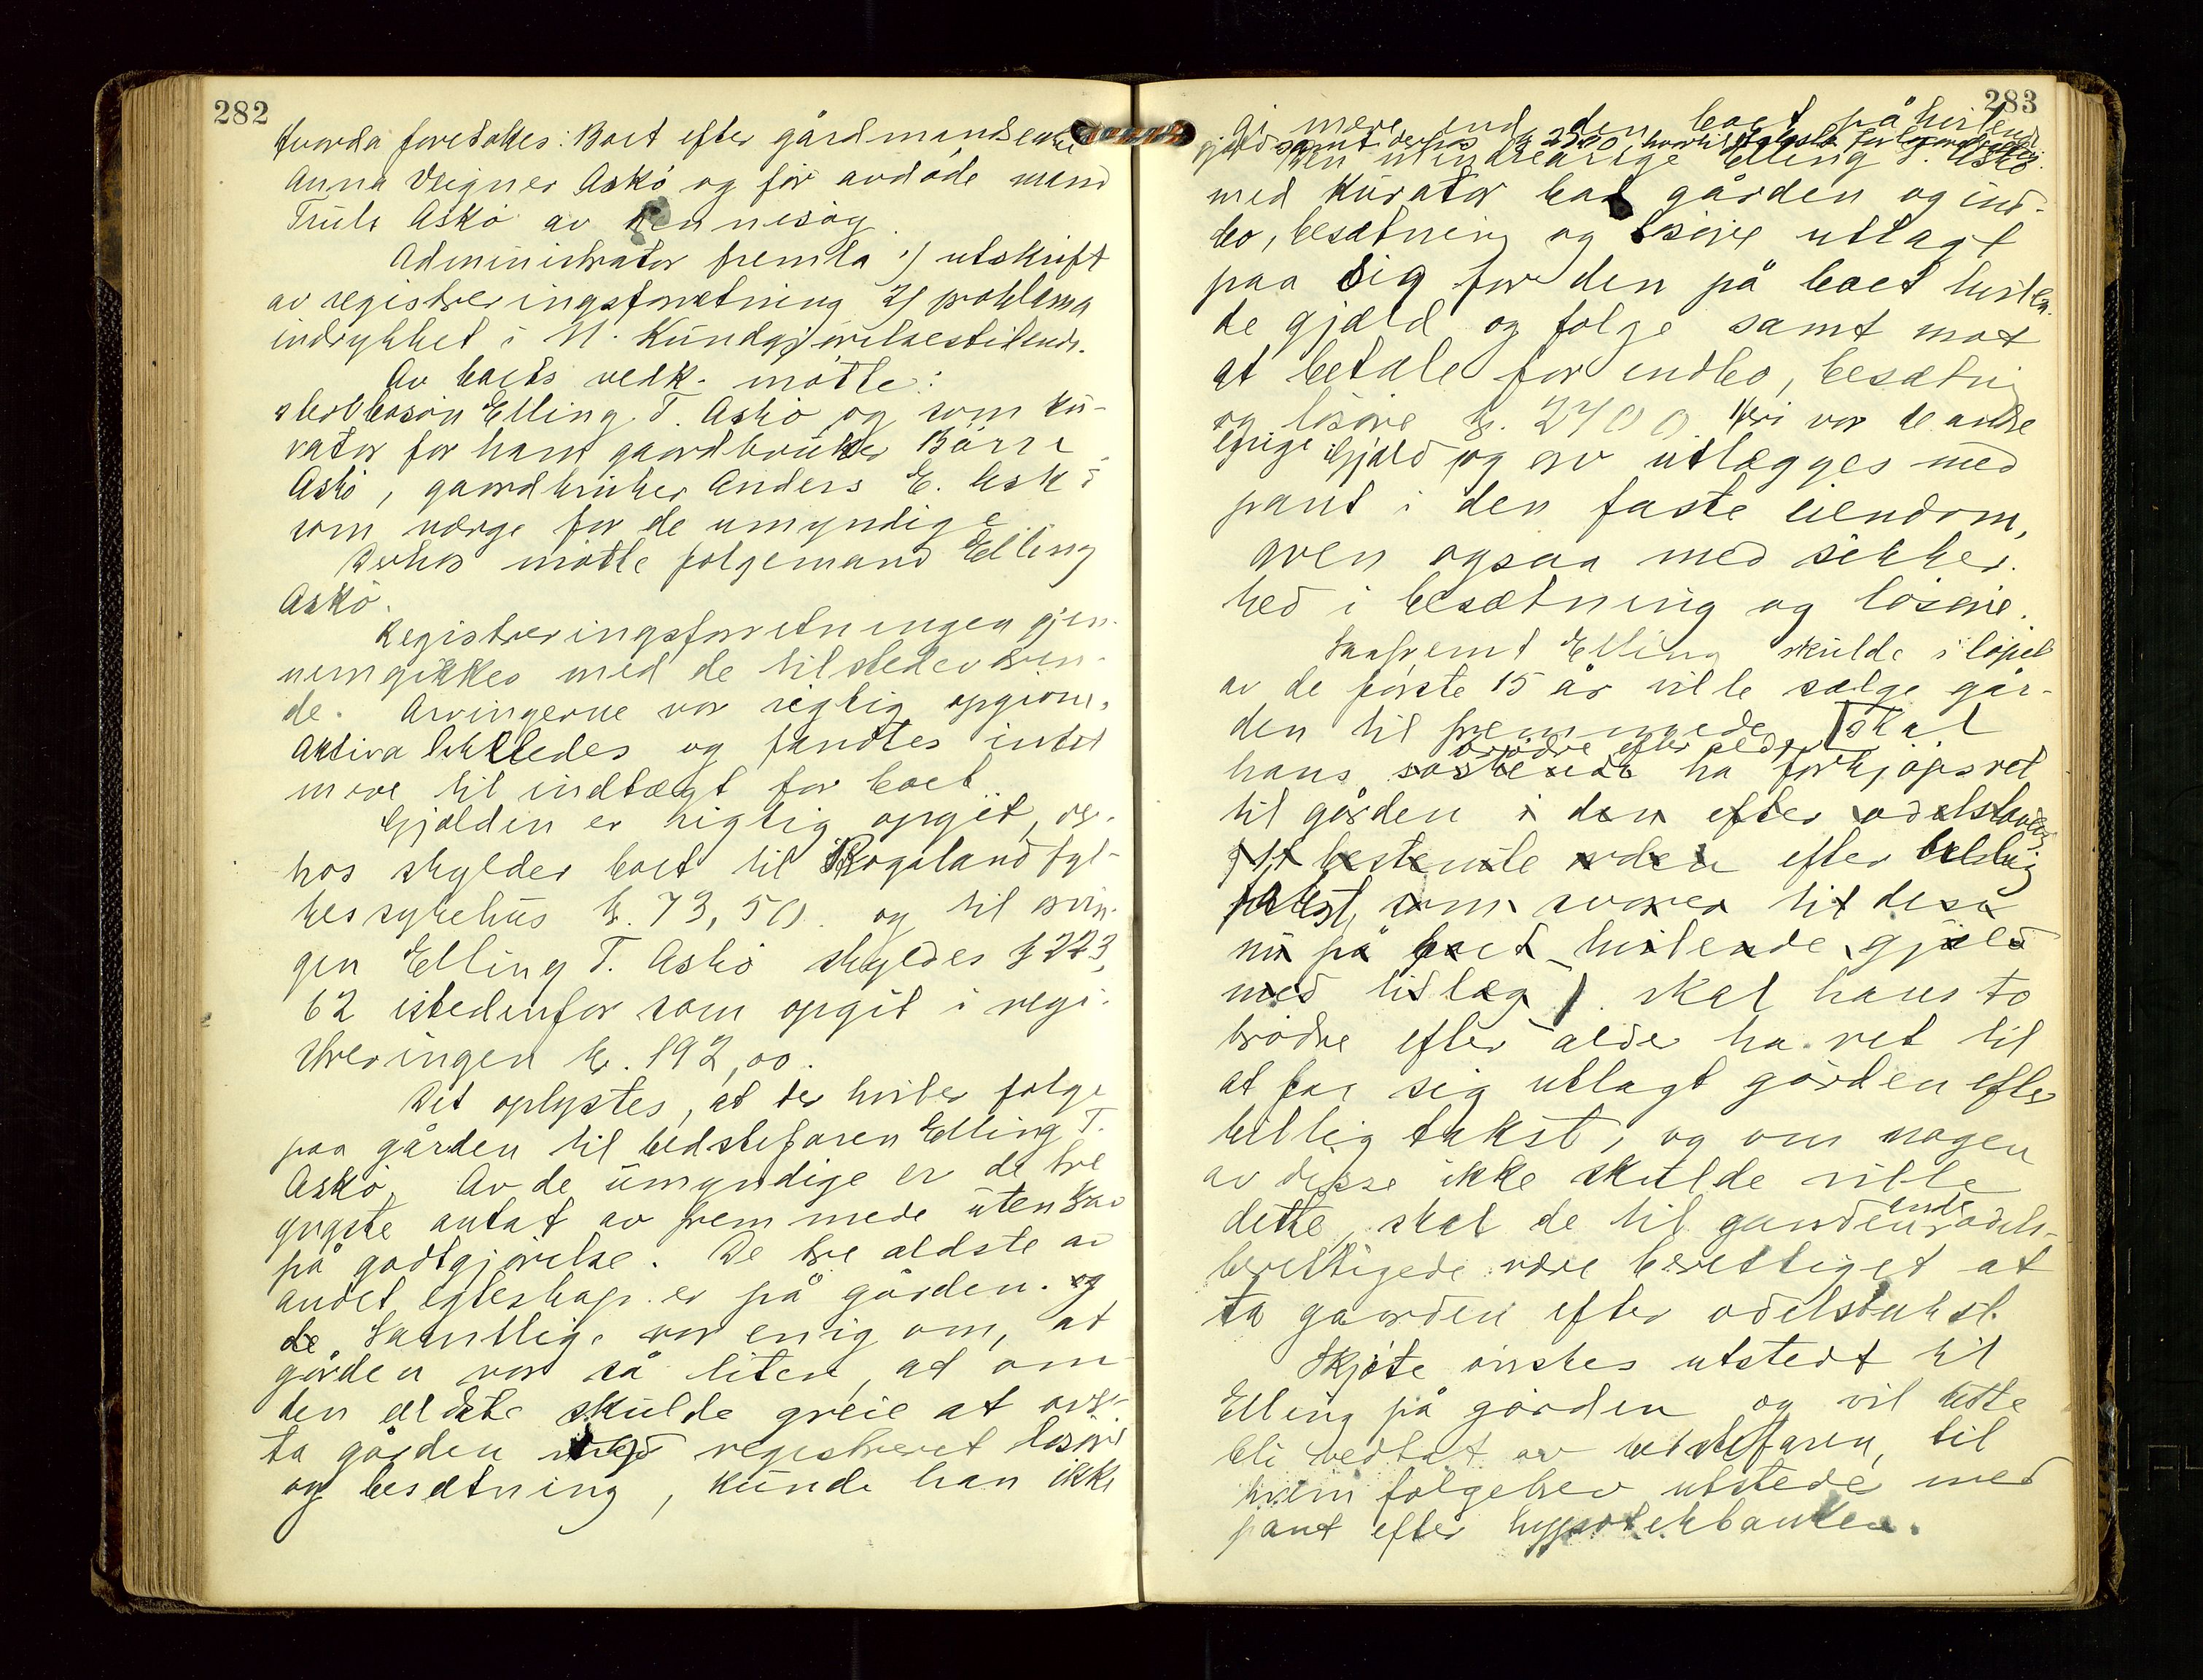 282
Hvorda foretokes: Boet efter gårdmandsenke
Anna Veigner Askö og för avdöde mand
Truls Askö av Rennesöy.
Administrator fremla 1) utskrift
av registreringsforretning 2) proklama
indrykket i N. Kundgjörelsestidende.
Av boets vedk. mötte:
sterbbosön Elling T. Askö og som ku-
rator for ham gaardbruker Börre
Askö, gaardbruker Anders E. Askö
som værge for de umyndige
Derhos mötte folgemand Elling
Askö.
Registreringsforretningen gjen-
nemgikkes med de tilstedeværen-
de. Arvingerne var rigtig opgivne.
Aktiva behandledes og fandtes intet
mere til indtægt for boet.
Gjælden er rigtig opgit, der-
hos skylder boet til Rogaland fyl-
kessykehus kr. 73,50 og til arvin-
gen Elling T. Askö skyldes kr 223,
62 istedenfor som opgit i regi-
streringen kr. 192,00.
Det oplystes, at der hviler folge
paa gården til bedstefaren Elling T.
Askö. Av de umyndige er de tre
yngste antat av fremmede uten krav
på godtgjörelse. De tre ældste av
andet egteskap er på gården. og
de Samtlige var enig om, at
gården var så liten, at om
den ældste skulde greie at over-
ta gården med registreret lösöre
og besætning, kunde han ikke
283
gi mere end den boet påhvilende
gjæld samt derhos kr 2700
Den mindreårige Elling T. Askö
med kurator bad gården og ind-
bo, besætning og lösöre utlagt
paa sig for den på boet hvilen-
de gjæld og folge samt mot
at betale for indbo, besætning
og lösöre kr. 2700. Heri var de andre
enige Gjæld og arv utlægges med
pant i den faste eiendom,
arven ogsaa med sikker-
hed i besætning og lösöre.
Saafremt Elling skulde i löpet
av de förste 15 år ville sælge går-
den til fremmede [skal
brödre efter alder
hans söskende ha forkjöpsret
til gården i den efter odelsloven
bestemte orden efter billig
takst, som svarer til desu
nu på boet hvilende gjæld
med tillæg]. skal hans to
brödre efter alder ha ret til
at faa sig utlagt gården efter
billig takst, og om nogen
av disse ikke skulde ville
dette, skal de til gaarden odels-
berettigede være berettiget at
ta gaarden efter odelstakst.
Skjöte önskes utstedt til
Elling på gården og vil dette
bli vedtat av bedstefaren, til
hvem folgebrev utstedes med
pant efter hypotekbanken.